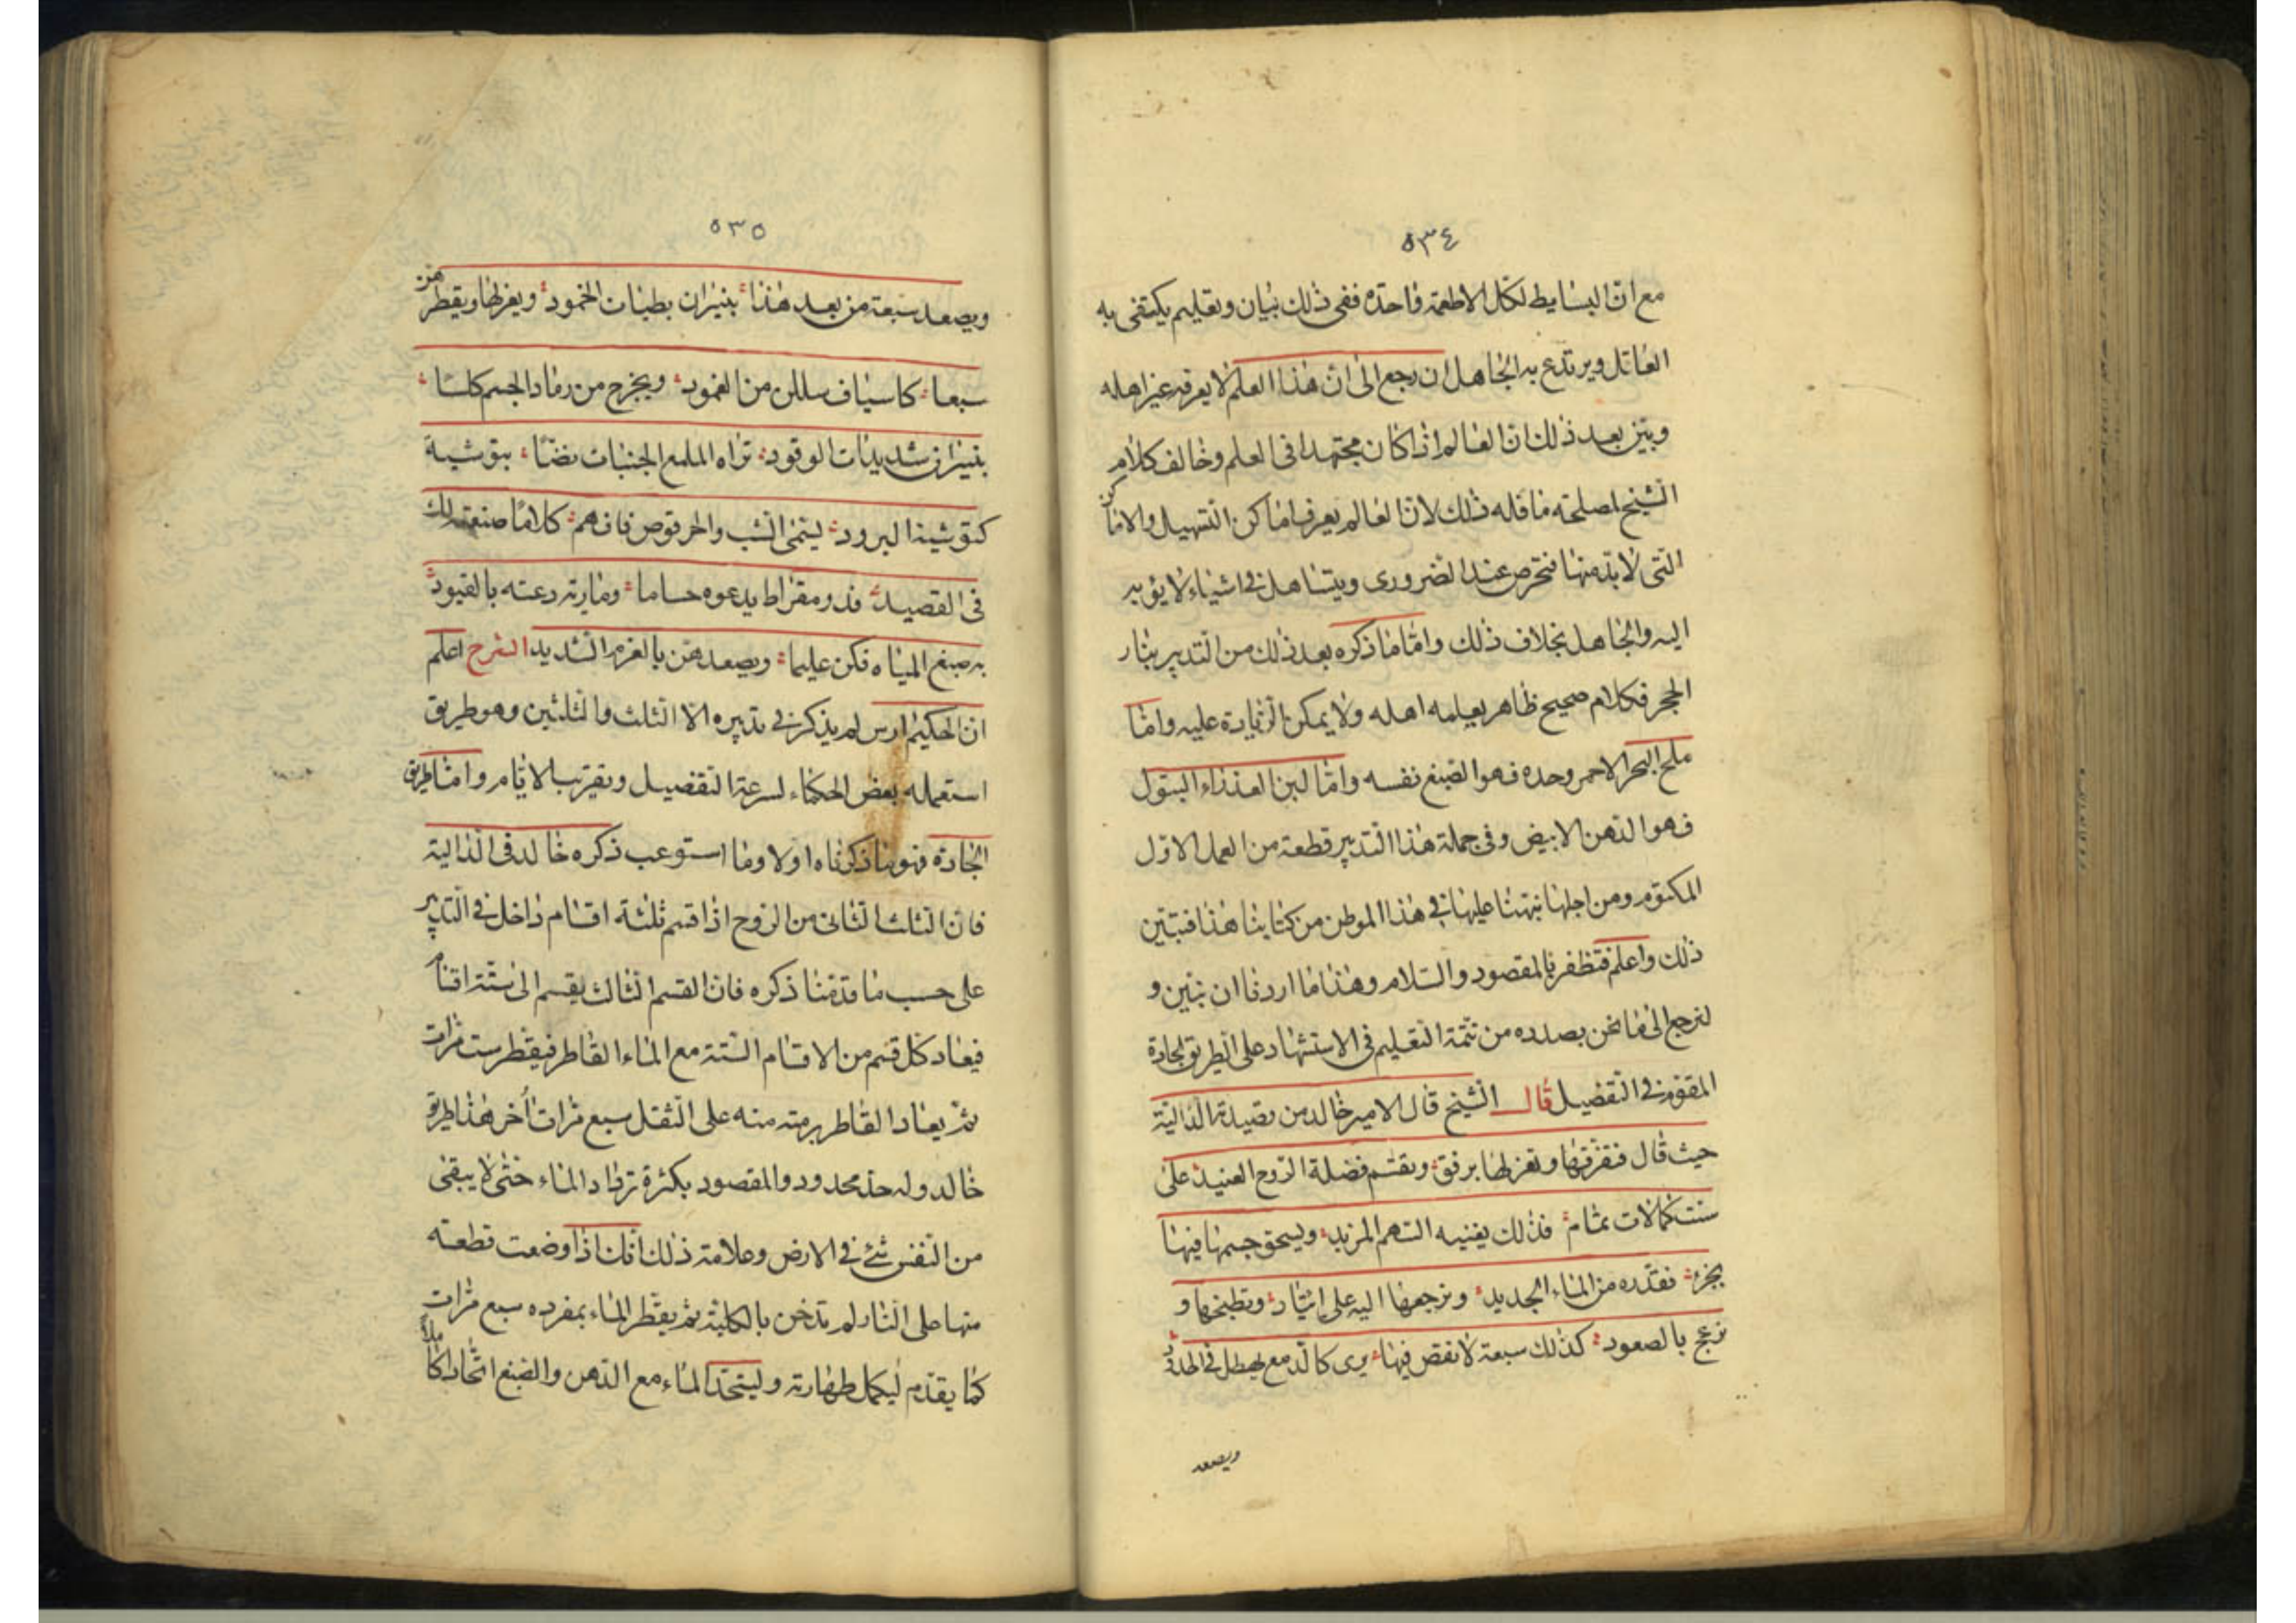 ٥٣٤
مع ان البسايط لكل الاطعمة واحدة ففى ذلك بيان وتعليم يكتفى به
العاقل ويرتدع به الجاهل ان رجع الى ان هذا العلم لا يعرفه غير اهله
وبين بعد ذلك ان العالم اذا كان مجتهدا فى العلم وخالف كلام
الشيخ لمصلحته ذلك لان العالم يعرف اماكن التسهيل والاماكن
التى لا بد منها فيحرص عند الضرورى ويتساهل فى اشياء لا يؤبه
اليه والجاهل بخلاف ذلك واما ما ذكره بعد ذلك من التدبير بنار
الحجر فكلام صحيح ظاهر يعلمه اهله ولا يمكن الزيادة عليه واما
ملح البحر الاحمر وحده فهو الصبغ نفسه واما لبن العذراء البتول
فهو الدهن الابيض وفى جملة هذا التدبير قطعة من العمل الاول
المكتوم ومن اجلها نبهنا عليها فى هذا الموطن من كتابنا هذا فتبين
ذلك واعلم فتظفر بالمقصود والسلام وهذا ما اردنا ان نبين و
لنرجع الى ما نحن بصدده من تتمة التعليم فى الاستشهاد على الطريق الجادة
فى التفصيل قال الشيخ قال الامير خالد من قصيدته الدالية
حيث قال وتعزلها برفق وتقسم فضلة الروح العنيد على
ست كمالات تمام فذلك يفنيه السهم المزيد ويسحق جسمها فيها
بجزء نقدره من الماء الجديد ونرجعها اليه على وتطبخها و
نزعج بالصعود كذلك سبعة لا نقص فيها يرى كالدمع يهطل فى الخدود
ويصعد
٥٣٥
ويصعد سبعة من بعد هذا بنيران بطيئات الخمود ويعزلها ويقطرهن
سبعا كاسياف سللن من الغمود ويخرج من رماد الجسم كلسا
بنيران شديدات الوقود تراه الملمع الجنبات نضا بتوشية
كتوشية البرود ليسمى الشب والحرقوص فافهم كلاما صنعته لك
فى القصيد فذو مقراط يدعوه حساما ومارية دعته بالقيود
به صبغ المياه فكن عليما ويصعدهن بالعزم الشديد الشرح اعلم
ان الحكيم ارس لم يذكر فى تدبيره الا الثلث والثلثين وهو طريق
استعمله بعض الحكماء لسرعة التفصيل وتقريب الايام واما طريق
الجادة فهو ما ذكرناه اولا وما استوعب ذكره خالد فى الدالية
فان الثلث الثانى من الروح اذا قسم ثلثة اقسام داخل فى التدبير
على حسب ما قدمنا ذكره فان القسم الثالث يقسم الى ستة اقسام
فيعاد كل قسم من الاقسام الستة مع الماء القاطر فيقطر ست مرات
ثم يعاد القاطر برمته منه على الثقل سبع مرات أخر هذا طريق
خالد وله حد محدود والمقصود بكثرة ترداد الماء حتى لا يبقى
من النفس شئ فى الارض وعلامة ذلك انك اذا وضعت قطعة
منها على النار لم تدخن بالكلية ثم يقطر الماء بمفرده سبع مرات
كما يقدم ليكمل طهارته وليتحد الماء مع الدهن والصبغ اتحادا كاملا